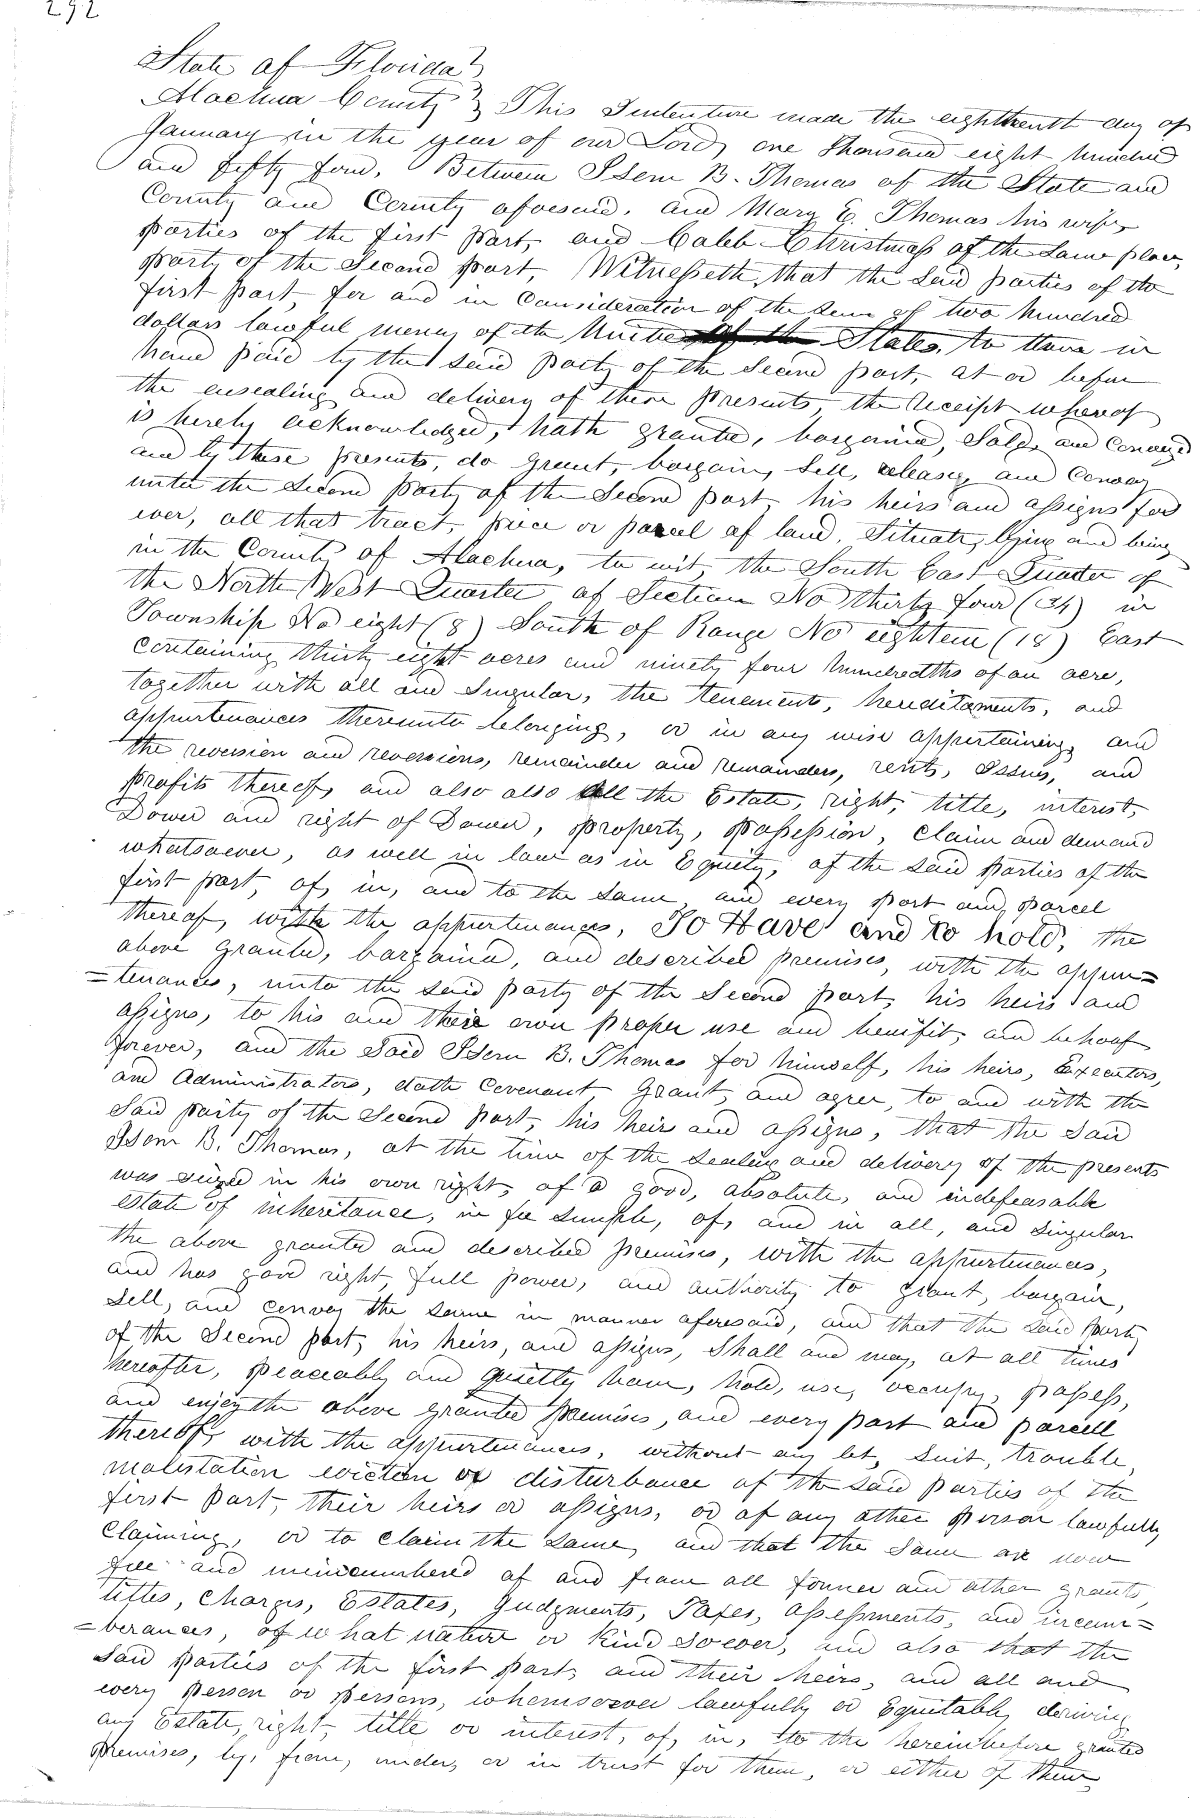 292
State of Florida }
Alachua County } This Indenture made the eighteenth day of
January in the year of our Lord, one thousand eight hundred
and fifty four. Between Isem B. Thomas of the State and
County and County aforesaid, and Mary E. Thomas his wife,
parties of the first part, and Caleb Christmass of the same place,
party of the second part, Witnesseth, that the said parties of the
first part, for and in consideration of the sum of two hundred
dollars lawful money of the United States, to them in
hand paid by the said party of the second part, at or before
the ensealing and delivery of these presents, the receipt whereof
is hereby acknowledged, hath granted, bargained, sold, and conveyed
and by these presents, do grant, bargain, sell, release, and convey
unto the second party of the second part, his heirs and assigns for
ever, all that tract, piece or parcel of land, situate, lying and being
in the County of Alachua, to wit, the South East Quarter of
the North West Quarter of Section No thirty four (34) in
Township No eight (8) South of Range No eighteen (18) East
containing thirty eight acres and ninety four hundredths of an acre,
together with all and singular, the tenements, hereditaments, and
appurtenances thereunto belonging, or in any wise appertaining, and
the reversion and reversions, remainder and remainders, rents, issues, and
profits thereof, and also also all the Estate, right, title, interest,
Dower and right of Dower, property, possession, claim and demand
whatsoever, as well in law as in Equity, of the said parties of the
first part, of, in, and to the same, and every part and parcel
thereof, with the appurtenances, To Have and to hold, the
above granted, bargained, and described premises, with the appur=
=tenances, unto the said party of the second part, his heirs and
assigns, to his and their own proper use and benifit, and behoof
forever, and the said Isem B. Thomas for himself, his heirs, Executors,
and Administrators, doth covenant, Grant, and agree, to and with the
said party of the second part, his heirs and assigns, that the said
Isem B. Thomas, at the time of the sealing and delivery of the presents
was seized in his own right, of a good, absolute, and indefeasable
estate of inheritance, in fee simple, of, and in all, and singular
the above granted and described premises, with the appurtenances,
and has good right, full power, and authority to grant, bargain,
sell, and convey the same in manner aforesaid, and that the said party
of the second part, his heirs, and assigns, shall and may, at all times
hereafter, peaceably and quietly have, hold, use, occupy, possess,
and enjoy the above granted premises, and every part and parcell
thereof, with the appurtenances, without any let, suit, trouble,
molestation eviction or disturbance of the said parties of the
first part, their heirs or assigns, or of any other person lawfully
claiming, or to claim the same, and that the same are now
free and unincumbered of and from all former and other grants,
titles, charges, Estates, Judgments, Taxes, assessments, and incum=
=berances, of what nature or kind soever, and also that the
said parties of the first part, and their heirs, and all and
every person or persons, whomsoever lawfully or Equitably deriving
any Estate, right, title or interest, of, in, to the hereinbefore granted
premises, by, from, under, or in trust for them, or either of them,